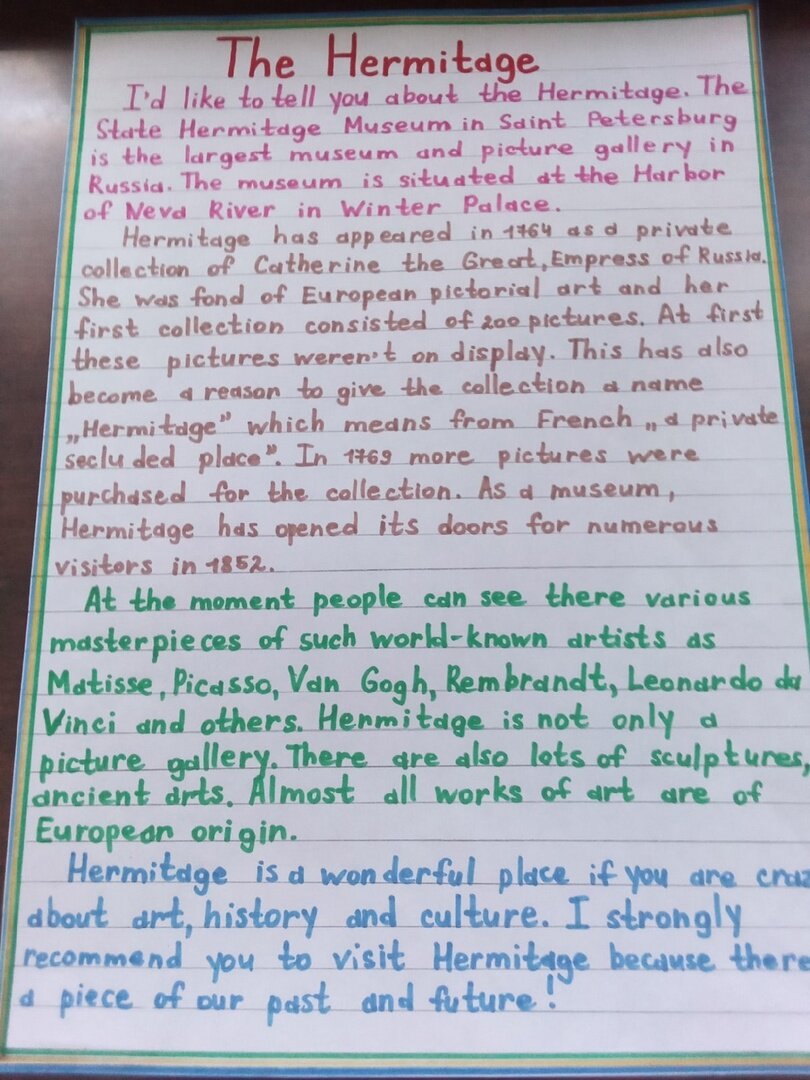 The Hermitage
I'd like to tell you about the Hermitage. The
State Hermitage Museum in Saint Petersburg
is the largest museum and picture gallery in
Russia. The museum is situated at the Harbor
of Neva River in Winter Palace.
Hermitage has appeared in 1764 as a private
collection of Catherine the Great, Empress of Russia.
She was fond of European pictorial art and her
first collection consisted of 200 pictures. At first
these pictures weren't on display. This has also
become a reason to give the collection a name
„Hermitage” which means from French „a private
secluded place”. In 1769 more pictures were
purchased for the collection. As a museum,
Hermitage has opened its doors for numerous
visitors in 1852.
At the moment people can see there various
masterpieces of such world-known artists as
Matisse, Picasso, Van Gogh, Rembrandt, Leonardo da
Vinci and others. Henmitage is not only a
picture gallery. There are also lots of sculptures,
ancient arts. Almost all works of art are of
European origin.
Hermitage is a wonderful place if you are craz
about art, history and culture. I strongly
recommend you to visit Hermitage because there
a piece of our past and future!